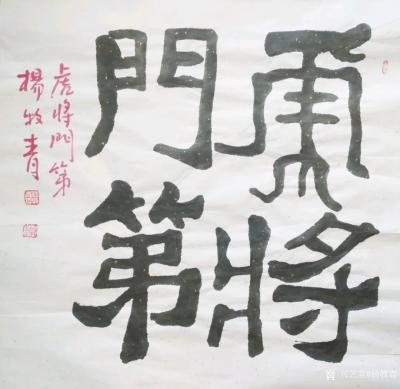 虎將
門第
虎将門第
楊牧青